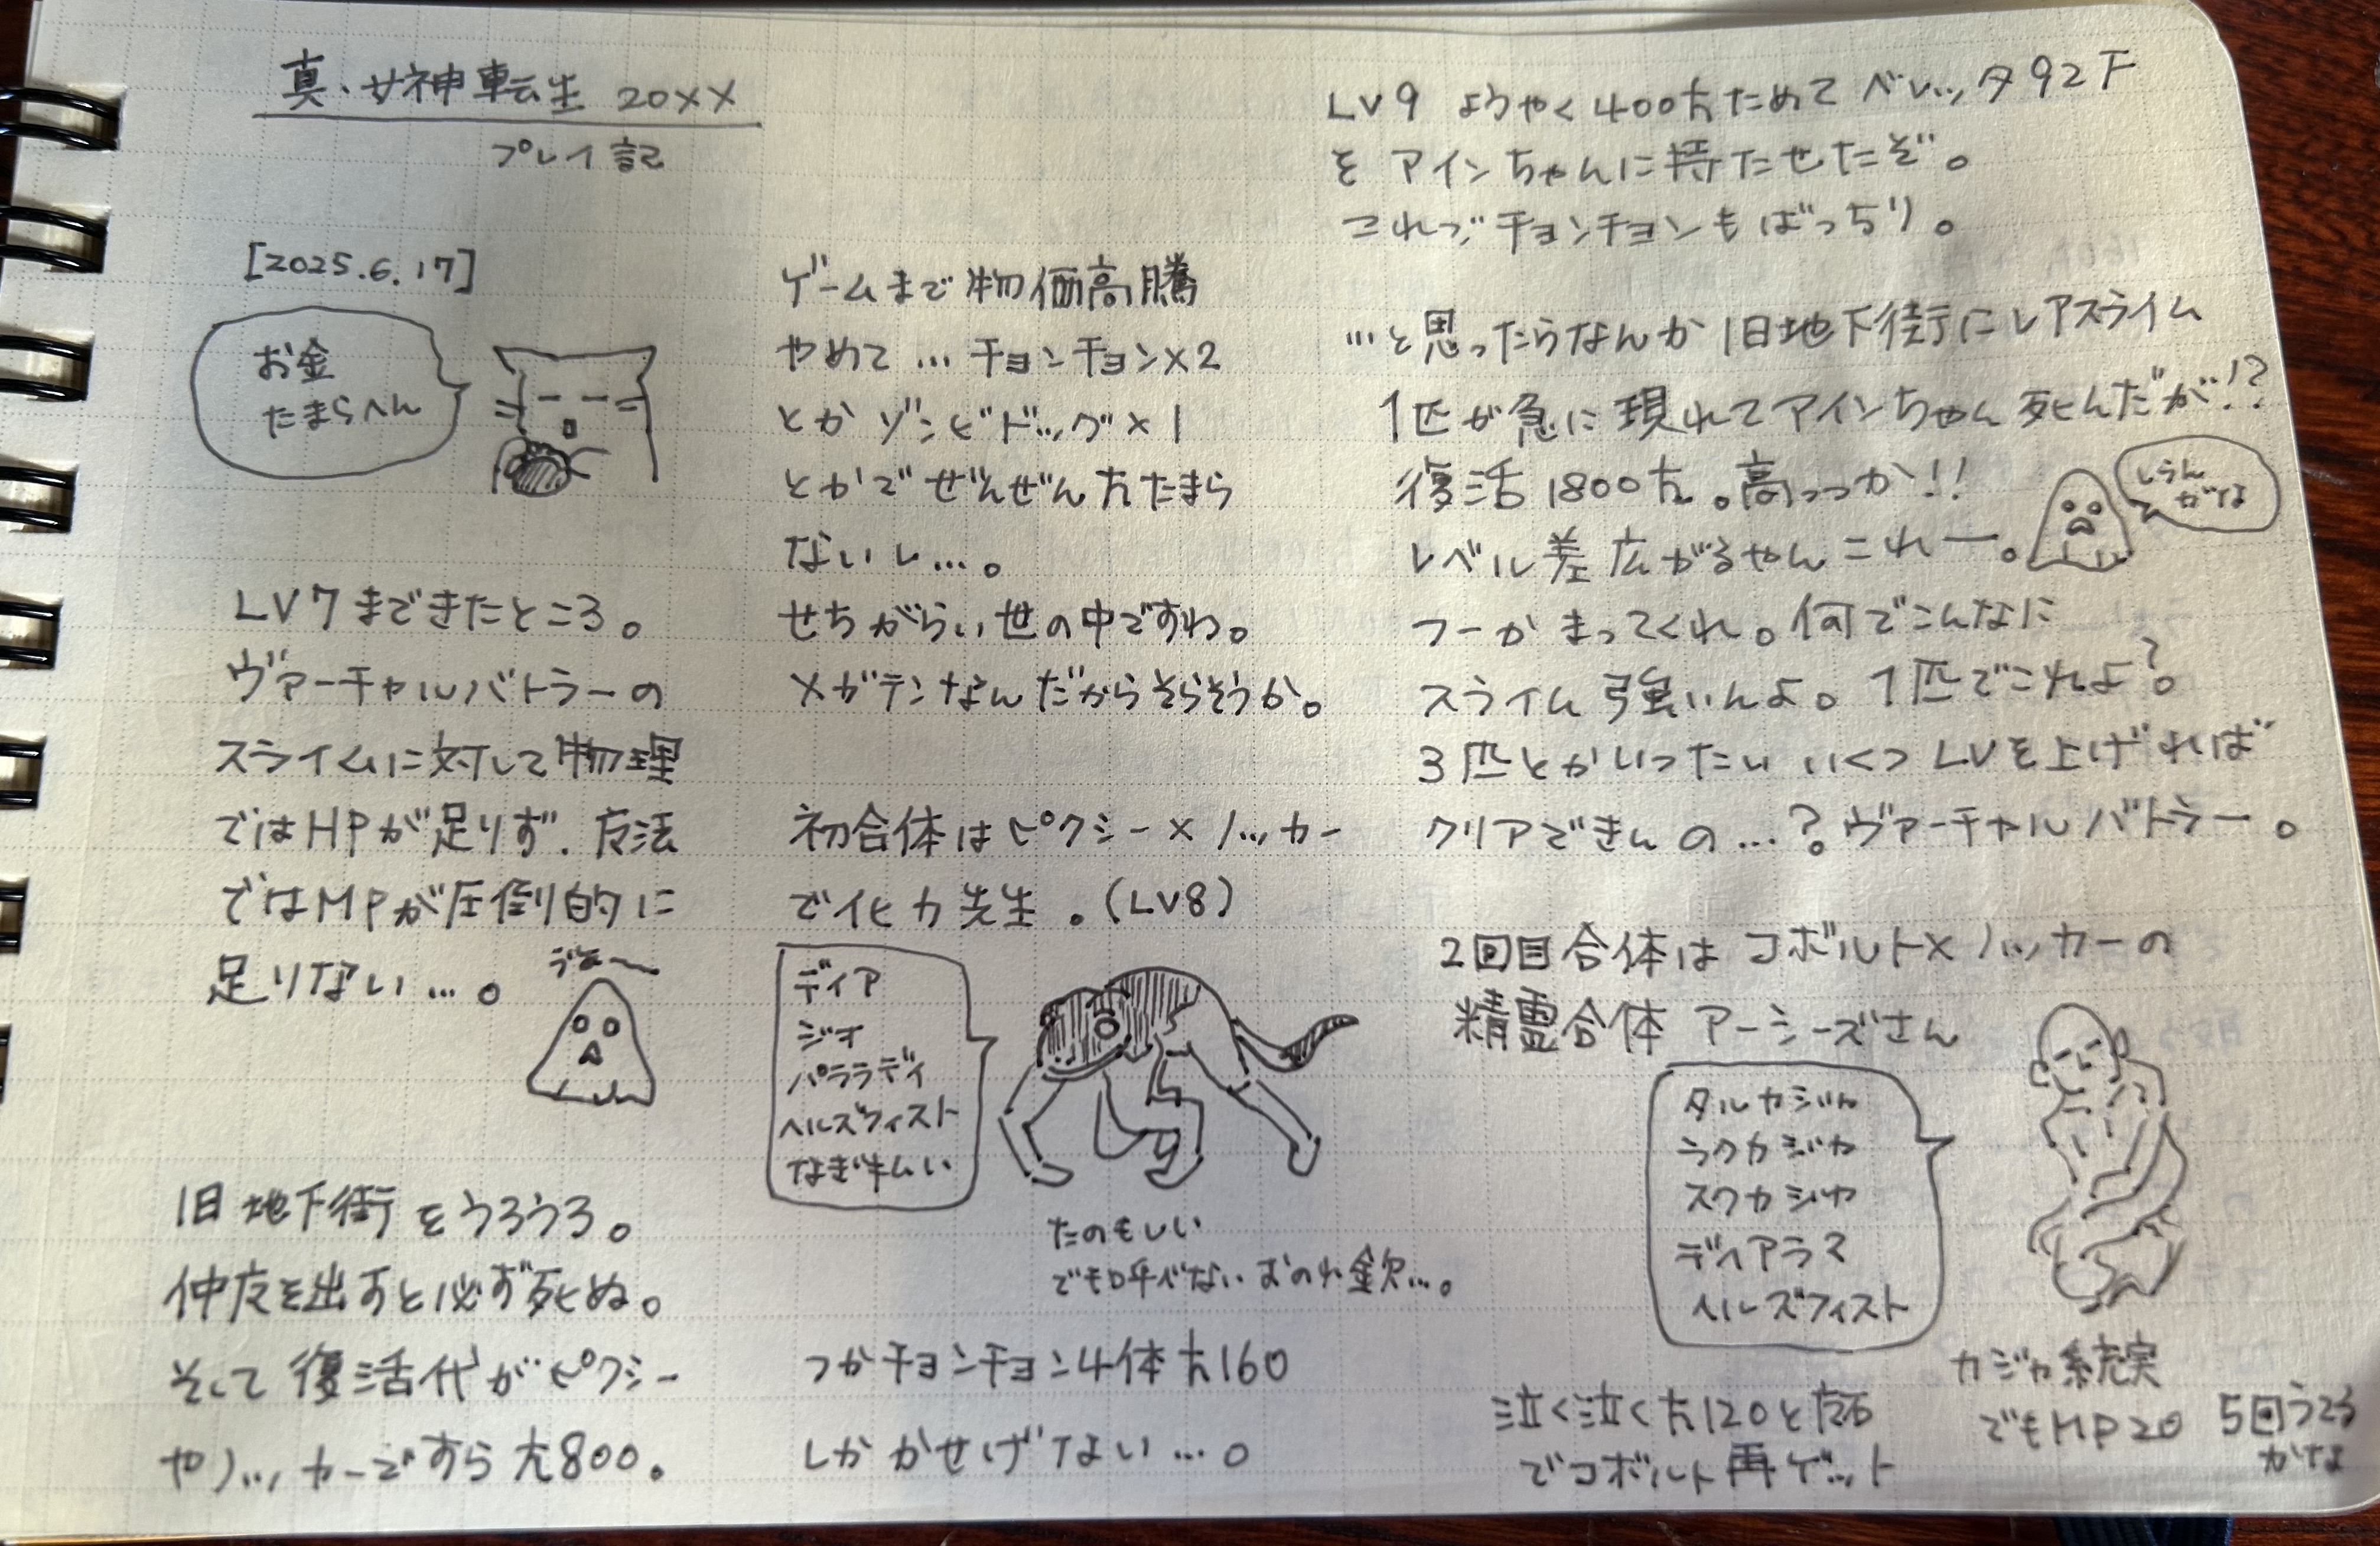 真・女神転生 20XX
プレイ記
[2025.6.17]
お金
たまらへん
LV7まできたところ。
ヴァーチャルバトラーの
スライムに対して物理
ではHPが足りず、方法
ではMPが圧倒的に
足りない…。
旧地下街をうろうろ。
仲友を出すと必ず死ぬ。
そして復活代がピクシー
やノッカーですら 800。
ゲームまで物価高騰
やめて…チョンチョン×2
とかゾンビドッグ×1
とかでぜんぜん たまら
ないし…。
せちがらい世の中ですわ。
メガテンなんだからそらそうか。
初合体はピクシー×ノッカー
で化カ先生。(LV8)
ディア
ジオ
パララディ
ヘルズフィスト
なぎ
たのもしい
でも呼べない おのれ金欠…。
つかチョンチョン4体 160
しかかせげない…。
LV9 ようやく400 ためてベレッタ92F
をアインちゃんに持たせたぞ。
これでチョンチョンもばっちり。
…と思ったらなんか旧地下街にレアスライム
1匹が急に現れてアインちゃん死んだが!?
復活1800 。高っっか!!
しらん
がな
レベル差広がるやんこれー。
つーかまってくれ。何でこんなに
スライム強いんよ。1匹でこれよ?。
3匹とかいったいいくつLVを上げれば
クリアできんの…?。ヴァーチャルバトラー。
2回目合体はコボルト×ノッカーの
精霊合体 アーシーズさん
タルカジャ
ラクカジャ
スクカジャ
ディアラマ
ヘルズフィスト
カジャ系充実
でもMP20 5回うてる
かな
泣く泣く 120と
でコボルト再ゲット